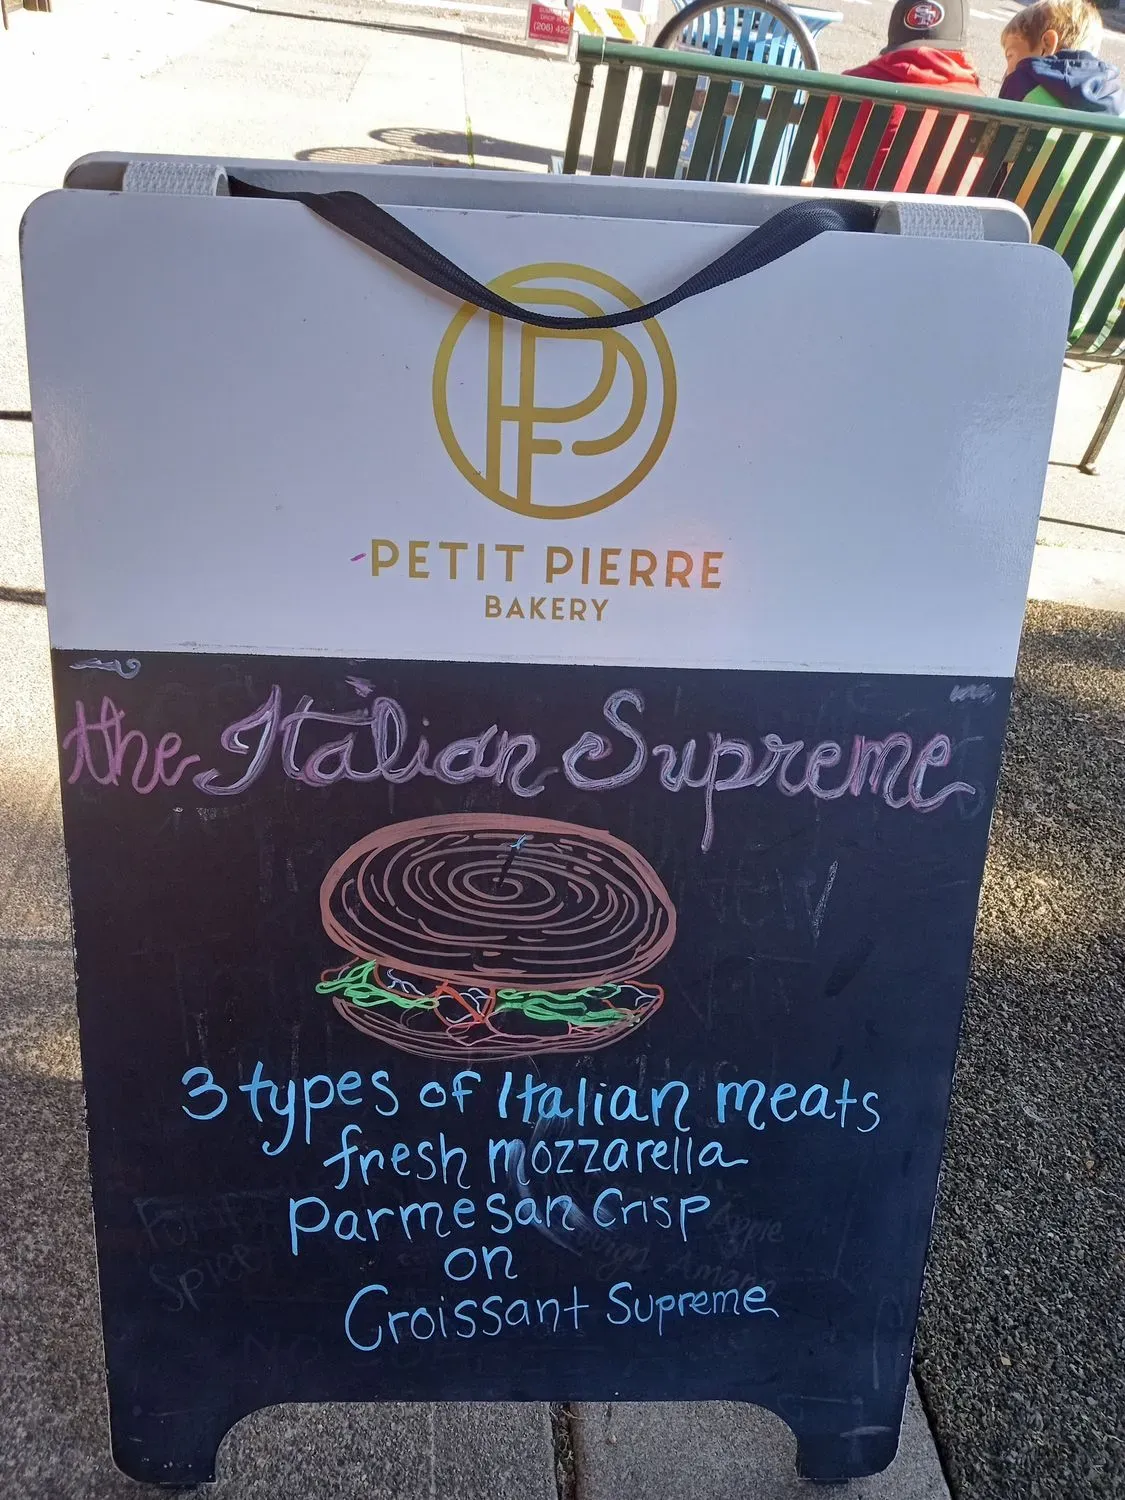 (206) 422
PETIT PIERRE
BAKERY
the Italian Supreme
3 types of Italian meats
fresh mozzarella
Parmesan Crisp
on
Croissant Supreme
Apple